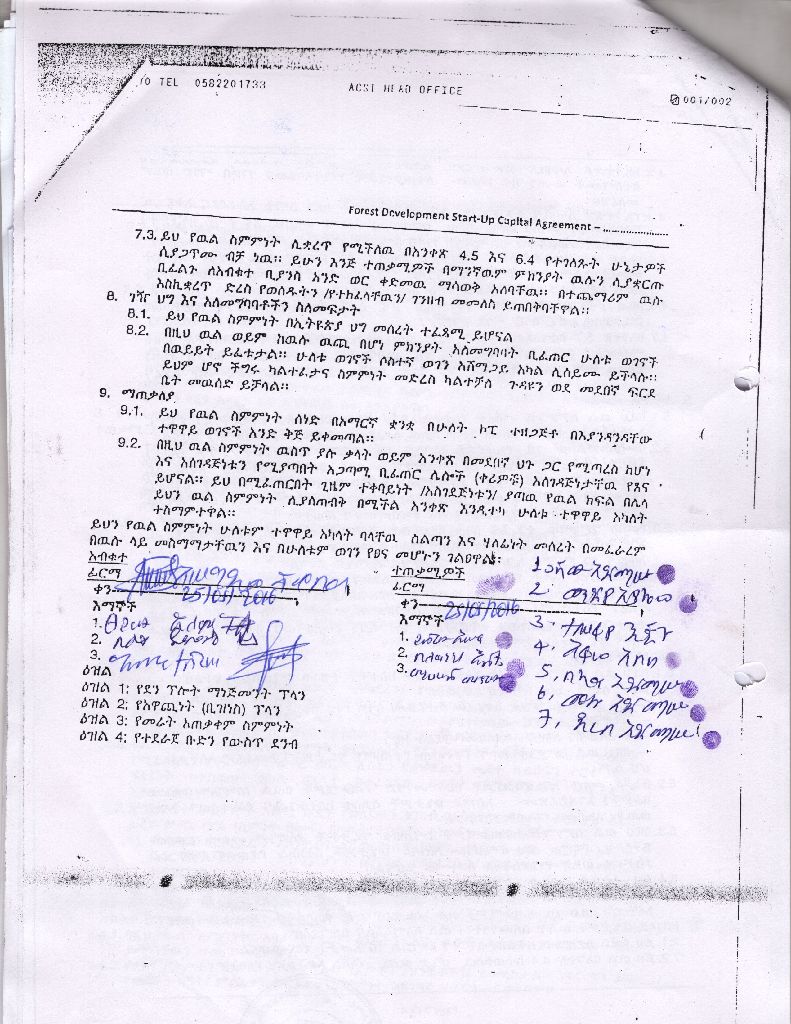 TEL 0582201733 ACSI HEAD OFFICE 001/002
Forest Development Start-Up Capital Agreement – ......................
7.3. ይህ የዉል ስምምነት ሊቋረጥ የሚችለዉ በአንቀጽ 4.5 እና 6.4 የተገለጹት ሁኔታዎች
ሲያጋጥሙ ብቻ ነዉ። ይሁን እንጅ ተጠቃሚዎች በማንኛዉም ምክንያት ዉሉን ሲያቋርጡ
ቢፈልጉ ለአብቁተ ቢያንስ አንድ ወር ቀድመዉ ማሳወቅ አለባቸዉ። በተጨማሪም ዉሉ
እስኪቋረጥ ድረስ የወሰዱትን /የተከፈላቸዉን/ ገንዘብ መመለስ ይጠበቅባቸዋል።
8. ገዥ ህግ እና አለመግባባቶችን ስለመፍታት
8.1. ይህ የዉል ስምምነት በኢትዮጵያ ህግ መሰረት ተፈጻሚ ይሆናል
8.2. በዚህ ዉል ወይም ከዉሉ ዉጪ በሆነ ምክንያት አለመግባባት ቢፈጠር ሁለቱ ወገኖች
በዉይይት ይፈቱታል። ሁለቱ ወገኖች ሶስተኛ ወገን አሸማጋይ አካል ሊሰይሙ ይችላሉ።
ይህም ሆኖ ችግሩ ካልተፈታና ስምምነት መድረስ ካልተቻለ ጉዳዩን ወደ መደበኛ ፍርድ
ቤት መዉሰድ ይቻላል።
9. ማጠቃለያ
9.1. ይህ የዉል ስምምነት ሰነድ በአማርኛ ቋንቋ በሁለት ኮፒ ተዘጋጅቶ በእያንዳንዳቸው
ተዋዋይ ወገኖች እንድ ቅጅ ይቀመጣል።
9.2. በዚህ ዉል ስምምነት ዉስጥ ያሉ ቃላት ወይም አንቀጽ በመደበኛ ህጉ ጋር የሚጣረስ ከሆነ
እና አስገዳጅነቱን የሚያጣበት አጋጣሚ ቢፈጠር ሌሎች (ቀሪዎቹ) አስገዳጅነታቸዉ የጸና
ይሆናል። ይህ በሚፈጠርበት ጊዜም ተቀባይነት /አስገደጅነቱን/ ያጣዉ የዉል ክፍል በሌላ
ይህን ዉል ስምምነት ሊያስጠብቅ በሚችል አንቀጽ እንዲተካ ሁለቱ ተዋዋይ አካላት
ተስማምተዋል።
ይህን የዉል ስምምነት ሁለቱም ተዋዋይ አካላት ባላቸዉ ስልጣን እና ሃላፊነት መሰረት በመፈራረም
በዉሉ ላይ መስማማታቸዉን እና በሁለቱም ወገን የፀና መሆኑን ገልፀዋል፡
አብቁተ
ፊርማ
ቀን 25/05/2016
እማኞች
1.
2.
3.
ተጠቃሚዎች
ፊርማ
ቀን 25/05/2016
እማኞች
1.
2.
3.
1.
2.
3.
4.
5.
6.
7.
ዕዝል
ዕዝል 1፡ የደን ፕሎት ማኔጅመንት ፕላን
ዕዝል 2፡ የአዋጪነት (ቢዝነስ) ፕላን
ዕዝል 3፡ የመሬት አጠቃቀም ስምምነት
ዕዝል 4፡ የተደራጀ ቡድን የውስጥ ደንብ